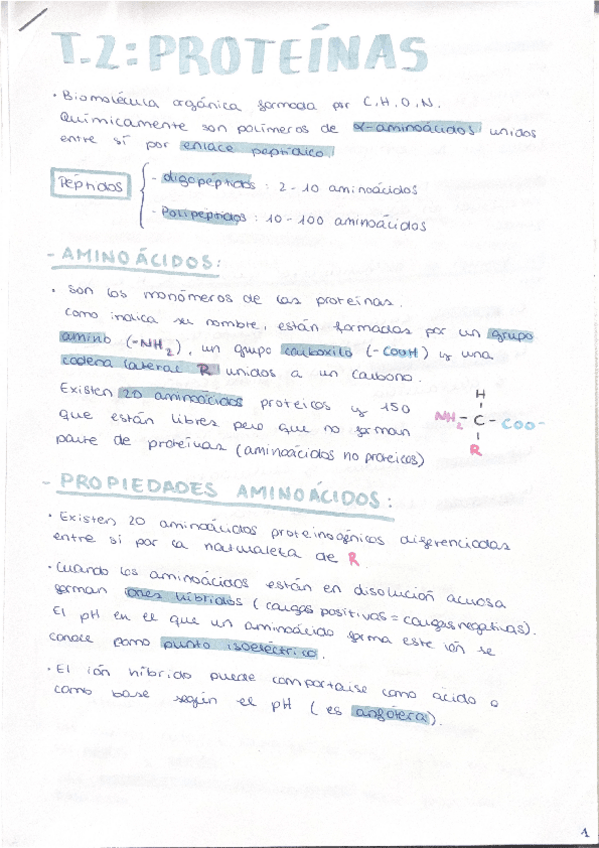 T.2: PROTEÍNAS
· Biomolécula orgánica formada por C, H, O, N.
Químicamente son polímeros de α-aminoácidos unidos
entre sí por enlace peptídico
Péptidos
- oligopéptidos : 2 - 10 aminoácidos
- Polipéptidos : 10 - 100 aminoácidos
- AMINOÁCIDOS:
· son los monómeros de las proteínas.
como indica su nombre, están formadas por un grupo
amino (-NH2), un grupo carboxilo (-COOH) y una
cadena lateral R unidos a un carbono.
Existen 20 aminoácidos proteicos y 150
que están libres pero que no forman
parte de proteínas (aminoácidos no proteicos)
H
NH2 - C - COO-
R
- PROPIEDADES AMINOÁCIDOS:
· Existen 20 aminoácidos proteinogénicos diferenciadas
entre sí por la naturaleza de R
· Cuando los aminoácidos están en disolución acuosa
forman iones híbridos (cargas positivas = cargas negativas).
El pH en el que un aminoácido forma este ión se
conoce como punto isoeléctrico.
· El ión híbrido puede comportarse como ácido o
como base según el pH (es anfótera).
1